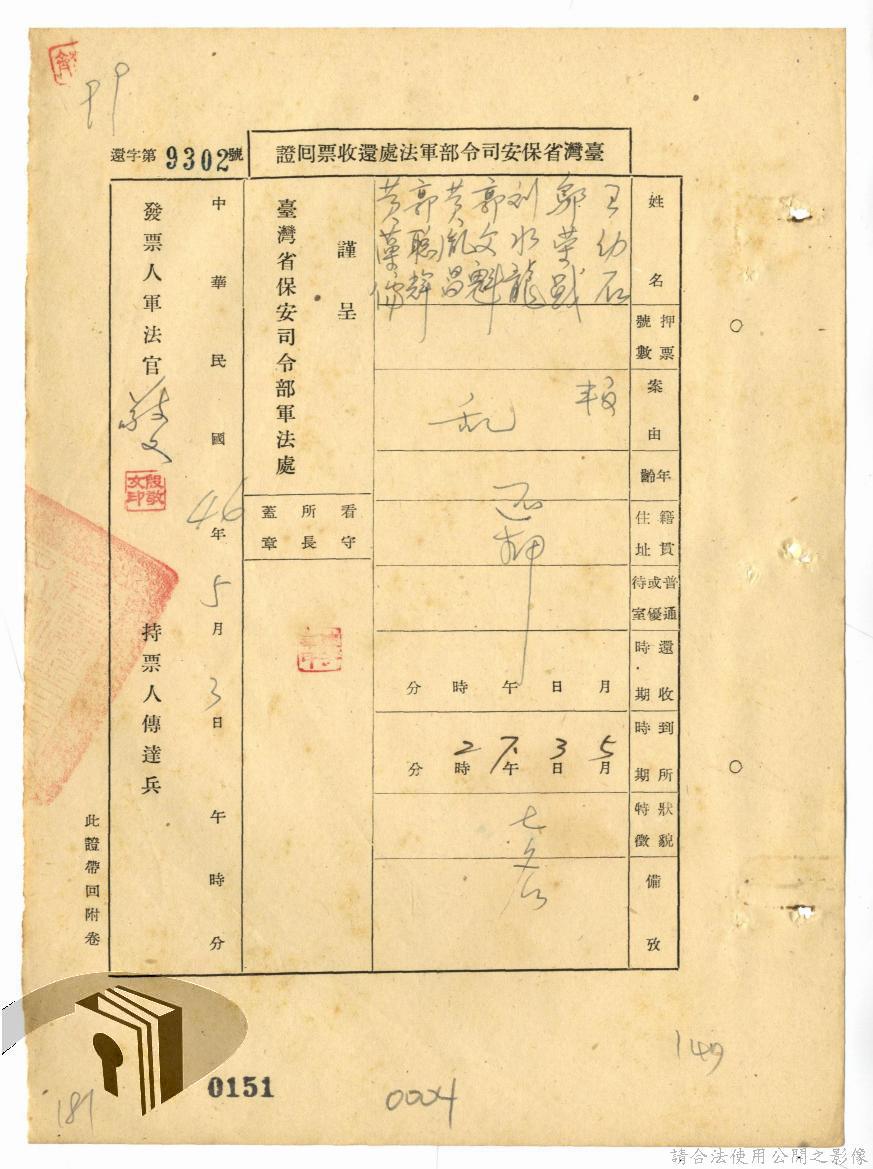 臺灣省保安司令部軍法處還收票回證
還字第9302號
姓名
王幼石
鄭榮戥
刘水龍
郭文魁
黃胤昌
郭聰輝
黃漢儒
押票號數
案由
叛乱
年齡
籍貫住址
还押
普通或優待室
還收時期
月 日 午 時 分
到所時期
5月3日下午2時 分
狀貌特徵
備攷
七名
謹呈
臺灣省保安司令部軍法處
看守所長蓋章
中華民國46年5月3日 午 時 分
發票人軍法官
敬文
殷敬文印
持票人傳達兵
此證帶回附卷
0151
0004
149
181
請合法使用公開之影像